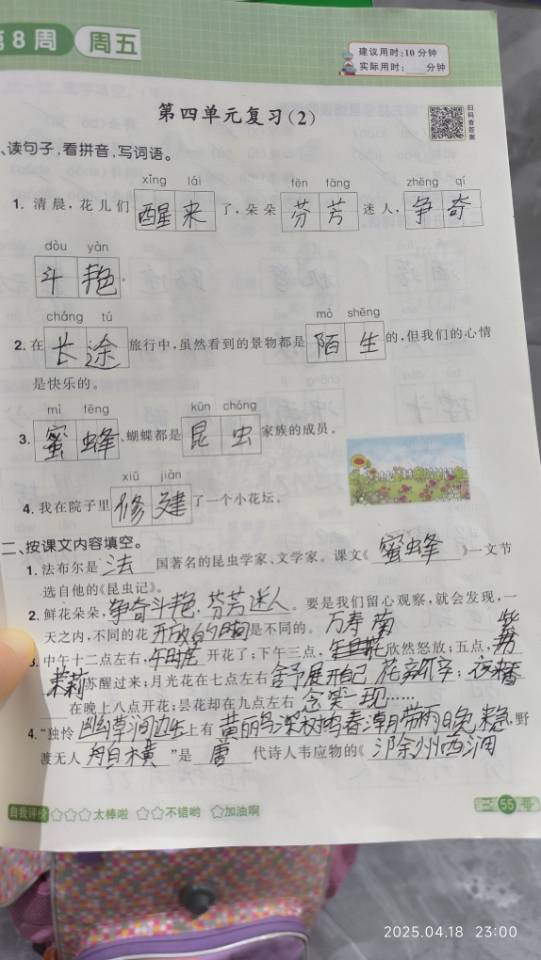 第8周 周五
建议用时:10分钟
实际用时: 分钟
扫码查答案
第四单元复习(2)
、读句子,看拼音,写词语。
xǐng lái fēn fāng zhēng qí
1. 清晨,花儿们醒来了,朵朵芬芳迷人,争奇
dòu yàn
斗艳。
cháng tú mò shēng
2. 在长途旅行中,虽然看到的景物都是陌生的,但我们的心情
是快乐的。
mì fēng kūn chóng
3. 蜜蜂、蝴蝶都是昆虫家族的成员。
xiū jiàn
4. 我在院子里修建了一个小花坛。
二、按课文内容填空。
1. 法布尔是法国著名的昆虫学家、文学家。课文《蜜蜂》一文节
选自他的《昆虫记》。
2. 鲜花朵朵,争奇斗艳,芬芳迷人。要是我们留心观察,就会发现,一
天之内,不同的花开放的时间是不同的。
万寿菊
3. 中午十二点左右,午时花开花了;下午三点,欣然怒放;五点,
茉莉苏醒过来;月光花在七点左右舒展开自己花瓣;夜来香
在晚上八点开花;昙花却在九点左右含笑一现……
4. “独怜幽草涧边生上有黄鹂深树鸣春潮带雨晚来急,野
渡无人舟自横”是唐代诗人韦应物的《州西涧
自我评价 ☆☆☆太棒啦 ☆☆不错哟 ☆加油啊
三 55 语
2025.04.18 23:00